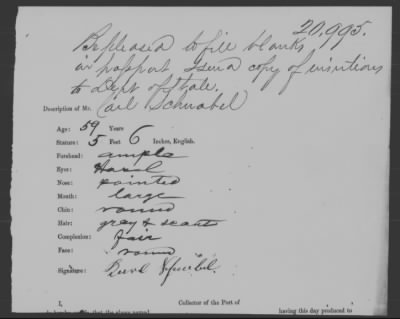 20,995.
Be pleased to fill blanks
in passport & send a copy of
to Dept of State.
Description of Mr. Carl Schnabel
Age: 59 Years
Stature: 5 Feet 6 Inches, English.
Forehead: ample
Eyes: Hazel
Nose: pointed
Mouth: large
Chin: round
Hair: grey & scant
Complexion: fair
Face: round
Signature:
I, Collector of the Port of
having this day produced to